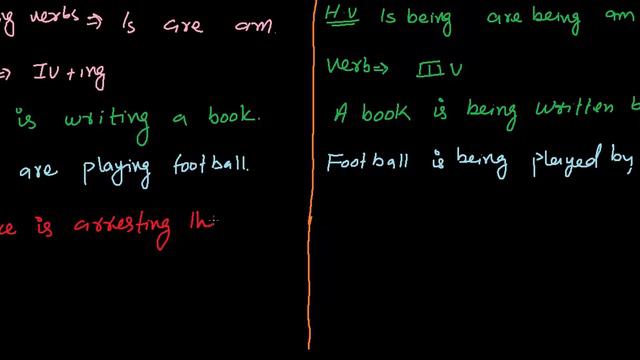 verbs ⇒ Is are am.
⇒ IV + ing
is writing a book.
are playing football.
is arresting th
H.V Is being are being am
Verb ⇒ III V
A book is being written
Football is being played by